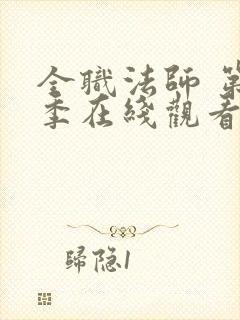 全職法師 第
季在綫觀看
歸隐1